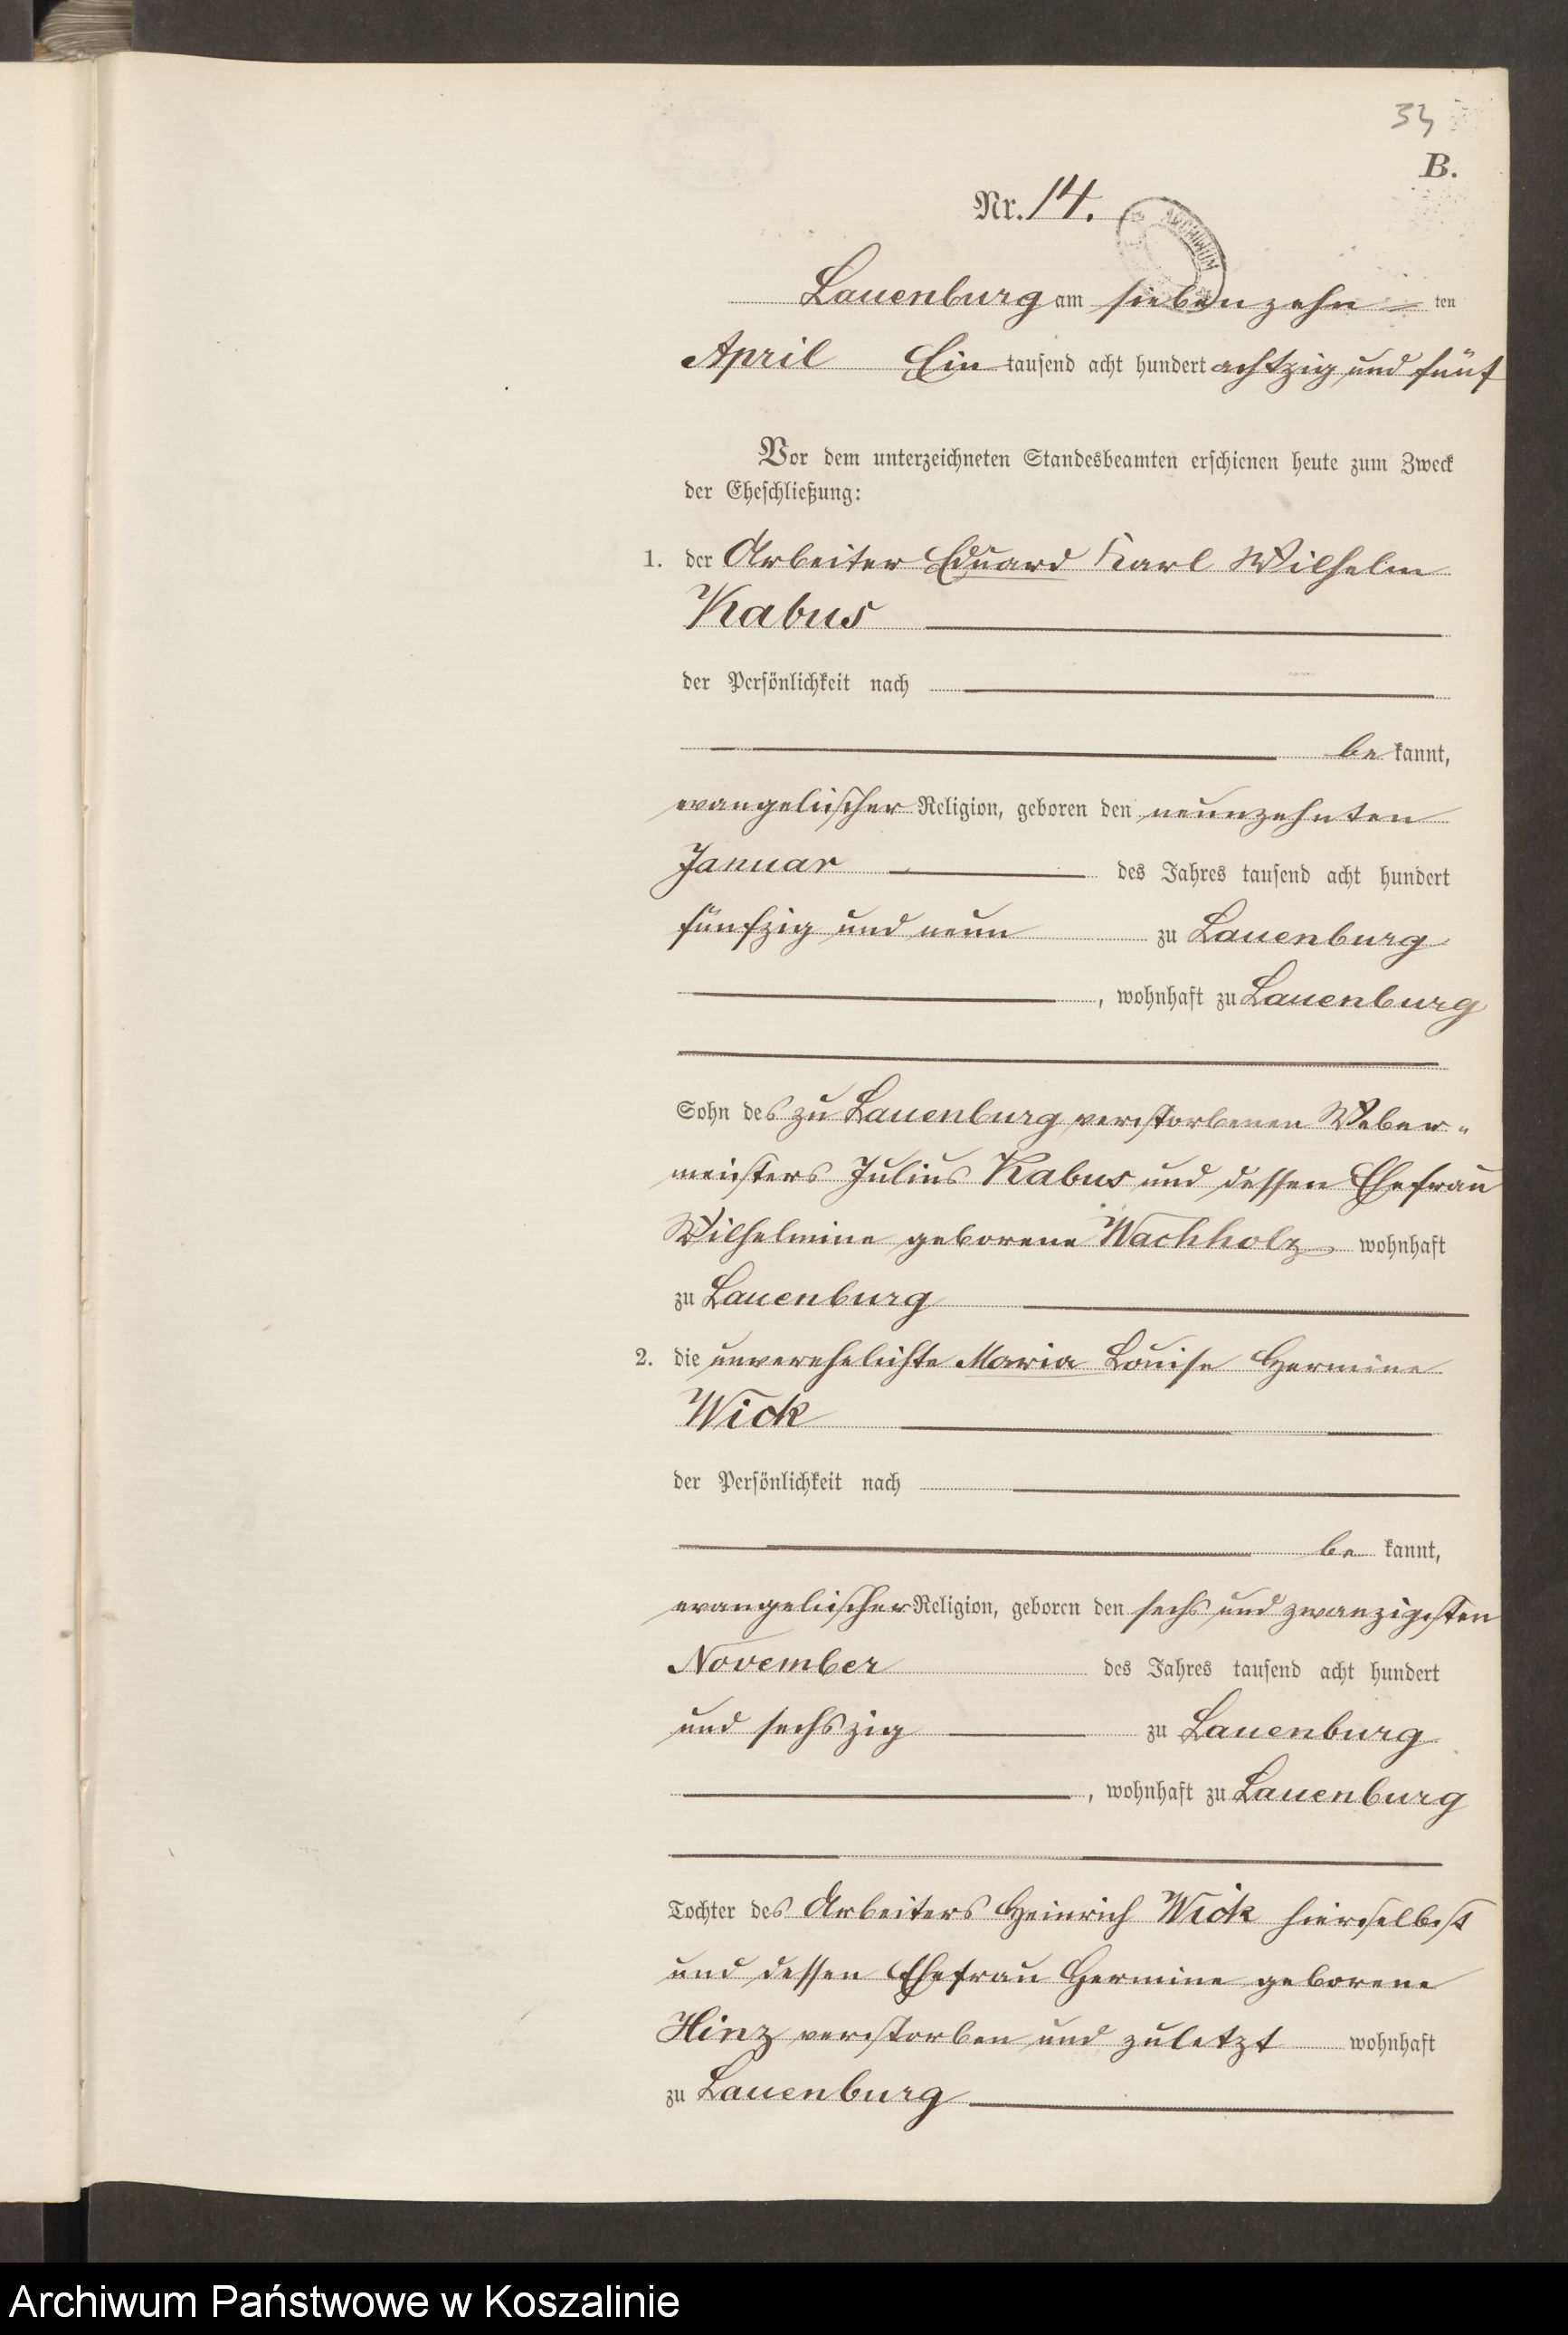 34
B.
Nr. 14.
ARCHIWUM
Lauenburg am siebenzehn ten
April Ein tausend acht hundert achtzig und fünf
Vor dem unterzeichneten Standesbeamten erschienen heute zum Zweck
der Eheschließung:
1. der Arbeiter Eduard Karl Wilhelm
Kabus
der Persönlichkeit nach
be kannt,
evangelischer Religion, geboren den neunzehnten
Januar des Jahres tausend acht hundert
fünfzig und neun zu Lauenburg
, wohnhaft zu Lauenburg
Sohn des zu Lauenburg verstorbenen Weber-
meisters Julius Kabus und dessen Ehefrau
Wilhelmine geborene Wachholz wohnhaft
zu Lauenburg
2. die unverehelichte Maria Louise Hermine
Wick
der Persönlichkeit nach
be kannt,
evangelischer Religion, geboren den sechs und zwanzigsten
November des Jahres tausend acht hundert
und sechszig zu Lauenburg
, wohnhaft zu Lauenburg
Tochter des Arbeiters Heinrich Wick hierselbst
und dessen Ehefrau Hermine geborene
Hinz verstorben und zuletzt wohnhaft
zu Lauenburg
Archiwum Państwowe w Koszalinie